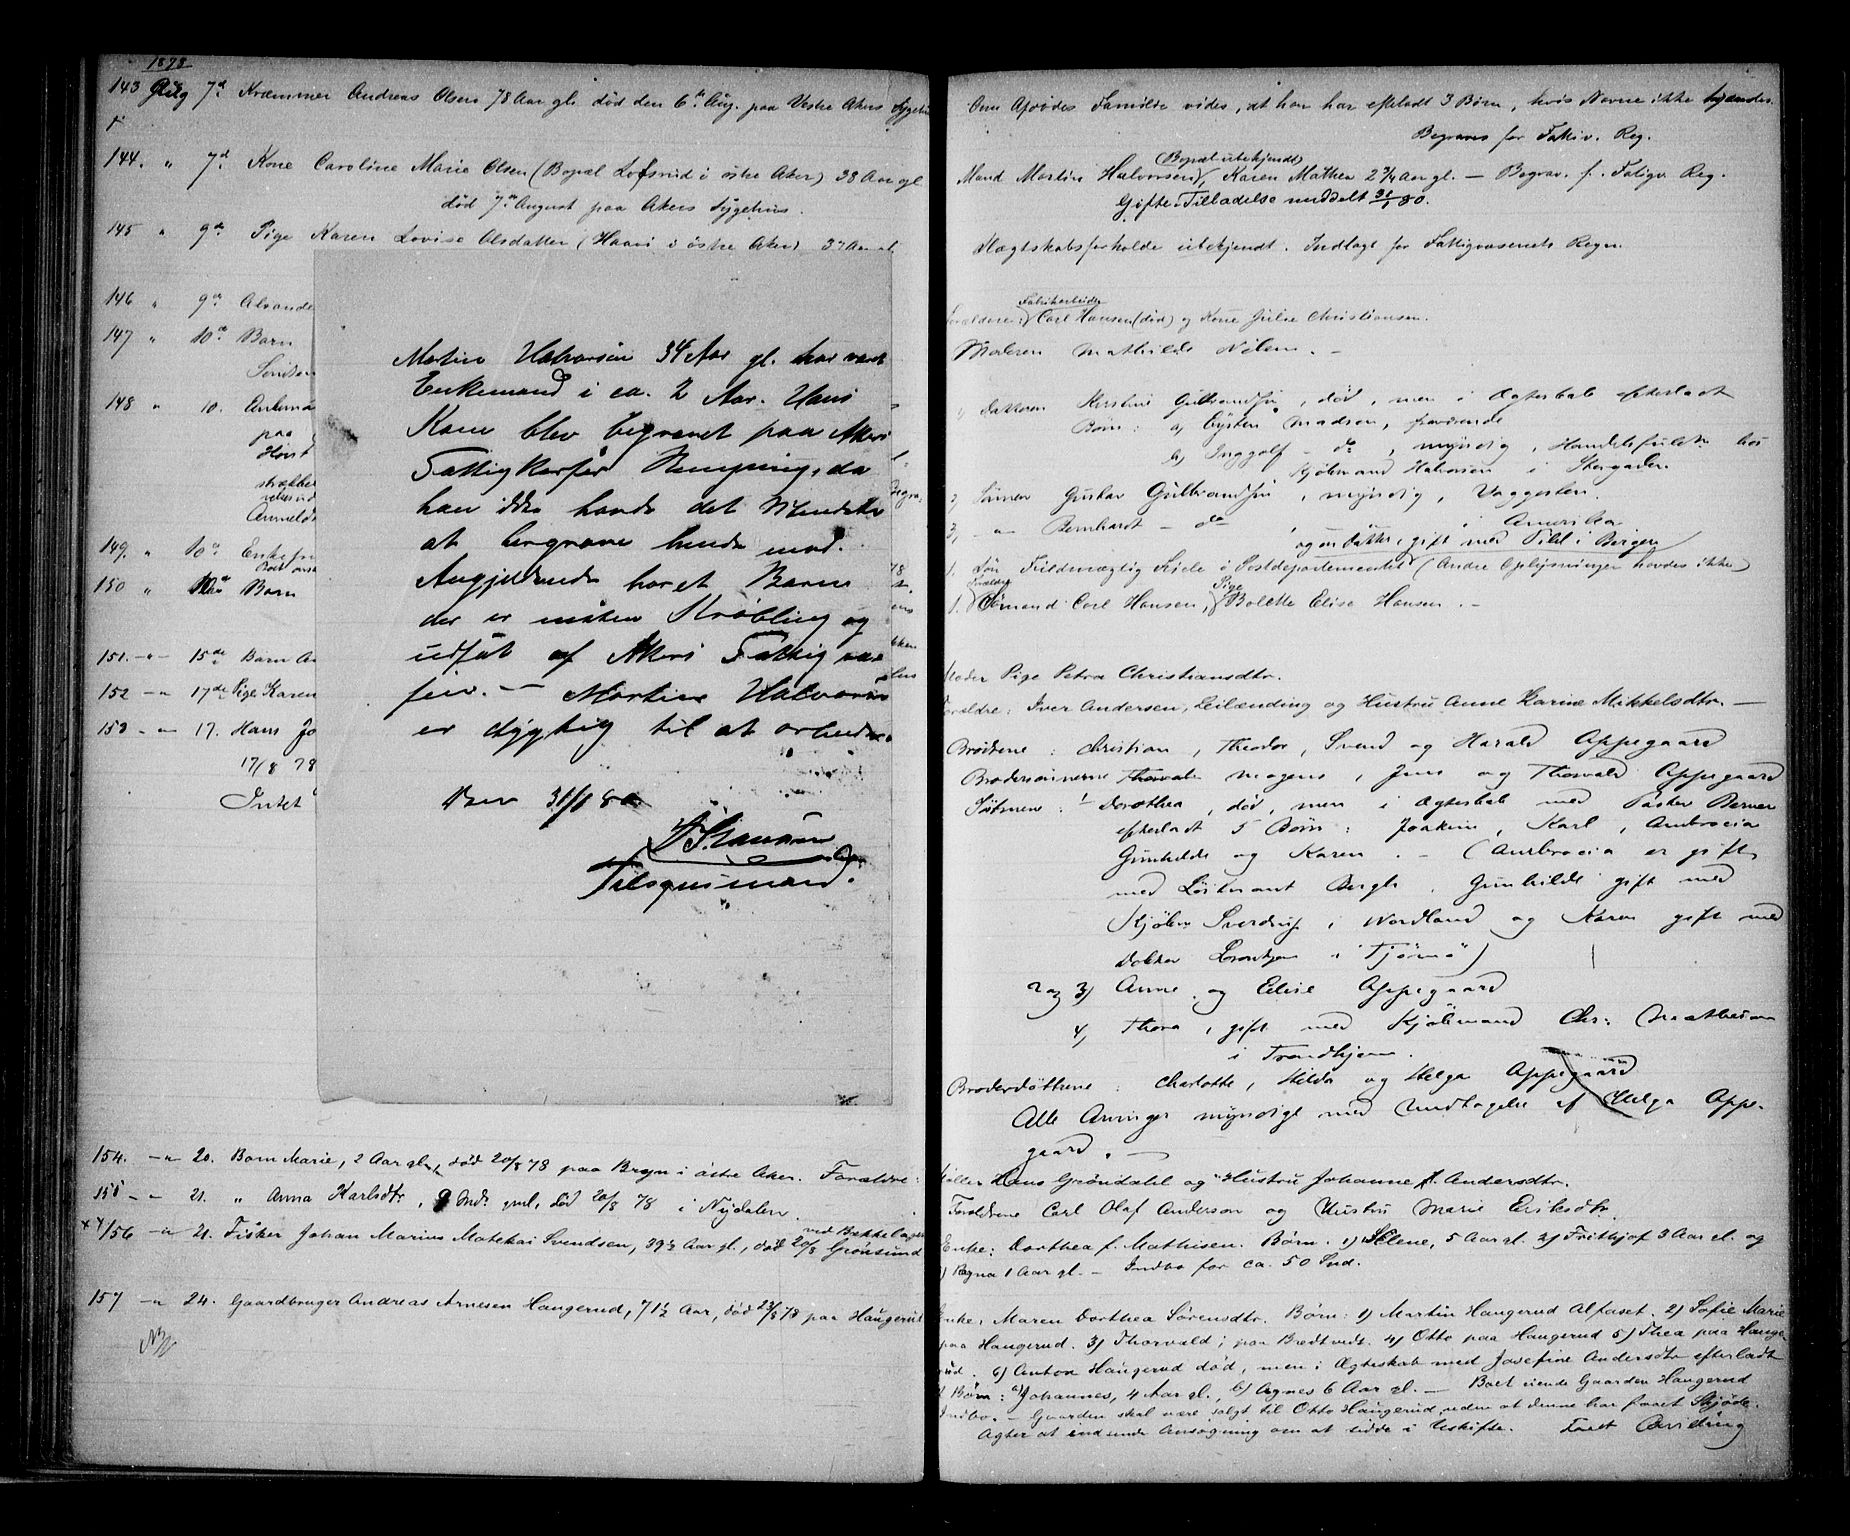 1878
143 Aug 7de Kræmmer Andreas Olsen 78 Aar gl. død den 6te Aug. paa Vestre Akers Sygehus
144. " 7d Kone Caroline Marie Olsen (Bopæl i østre Aker) 38 Aar gl.
død 7de August paa Akers Sygehus.
145 " 9de Pige Karen Lovise Olsdatter (Haavi i østre Aker) 37 Aar gl.
146 " 9de
147 " 10de Barn
148 " 10.
paa
149. " 10de
150 " Barn
151. -"- 15de Barn
152 -"- 17de Pige Karen
153 -"- 17. Hans Jo
17/8 78
Intet
Martin Halvorsen 34 Aar gl. har været
Enkemand i ca. 2 Aar. Hans
Kone blev begravet paa Akers
Fattigkasses da
han ikke havde det Mindste
at begrave hende med.
Angjældende har et Barn
der er Krøbling og
udsat af Akers Fattigvæ
sen. — Martin Halvorsen
er dygtig til at arbeide.
31/1 80
Tilsynsmand.
154. -"- 20. Barn Marie, 2 Aar gl., død 20/8 78 paa Bryn i østre Aker. Forældre:
155 -"- 21. " Anna Karlsdtr, 9 Mdr. gml., død 20/8 78 i Nydalen.
156 -"- 21. Fisker Johan Marius Svendsen, 39½ Aar gl., død 20/8 Grønsund
ved Bækkelaget
157 -"- 24. Gaardbruger Andreas Arnesen Haugerud, 71½ Aar, død 23/8 78 paa Haugerud
NB
Om Afdødes Familie vides, at han har efterladt 3 Børn, hvis Navne ikke kjendes.
Begraves for Fattigv. Reg.
(Bopæl ubekjendt)
Mand Martin Halvorsen, Karen Mathea 2¼ Aar gl. — Begrav. f. Fatigv. Reg.
Gifte-Tilladelse meddelt 31/1 80.
Slægtskabsforholde ubekjendt. Indlagt for Fattigvæsenets Regn.
Fabrikarbeider
Forældre: Carl Hansen (død) og Kone Julie Christiansen.
Moderen Mathilde Nilsen. -
1, Datteren Kirstine Gulbrandsen, død, men i Ægteskab efterladt
Børn: a) Øysten Madsen, fraværende
b, Inggolf - do, myndig, Handelsfuldm. hos
Kjøbmand Halvorsen i Storgaden.
2, Sønnen Gustav Gulbrandsen, myndig, Vaggesten.
3, -"- Bernhardt - do, i Amerika
og en Datter, gift med i Bergen
1. Søn Fuldmægtig Kiele i Postdepartementet (Andre Oplysninger havdes ikke)
Forældre Pige
1. Sømand Carl Hansen, Bolette Elise Hansen. -
Moder Pige Petra Christiansdtr.
Forældre: Iver Andersen, Leilænding og Hustru Anne Karine Mikkelsdtr. —
Brødrene: Christian, Theodor, Svend og Harald Oppegaard
Brodersønnerne Mogens, Jens og Thorvald Oppegaard
Søstrene: 1 Dorothea, død, men i Ægteskab med Pastor Berner
efterladt 5 Børn: Joakim, Karl, Ambrocia
Gunhilde og Karen. - (Ambrocia er gift
med Løitnant Bergh, Gunhilde gift med
Kjøbm Sverdrup i Nordland og Karen gift med
Doktor i Tjømø)
2 og 3) Anne og Elise Oppegaard
4, Thora, gift med Kjøbmand Chr: Mathesen
i Trondhjem.
Broderdøttrene: Charlotte, Hilda og Helga Oppegaard
Alle Arvinger myndige med Undtagelse af Helga Oppe-
gaard. -
Møller Hans Grøndahl og Hustru Johanne f. Andersdtr.
Forældrene Carl Olaf Anderson og Hustru Marie Eriksdtr.
Enke: Dorthea f. Mathisen. Børn. 1) Helene, 5 Aar gl. 2) Frithjof 3 Aar gl. og
3) Ragna 1 Aar gl. - Indbo for ca. 50 Spd.
Enke, Maren Dorthea Sørensdtr. Børn: 1) Martin Haugerud Alfaset. 2) Sofie Marie
paa Haugerud. 3) Thorvald, paa Bredtvedt. 4) Otto paa Haugerud 5) Thea paa Hauge-
rud. 6) Anton Haugerud død, men i Ægteskab med Josefine Andersdtr efterladt
2 Børn: a) Johannes, 4 Aar gl., b) Agnes 6 Aar gl. — Boet eiende Gaarden Haugerud
Indbo. - Gaarden skal være solgt til Otto Haugerud, uden at denne har faaet Skjøde.
Agter at indsende Ansøgning om at sidde i Uskifte. Faaet Bevilling